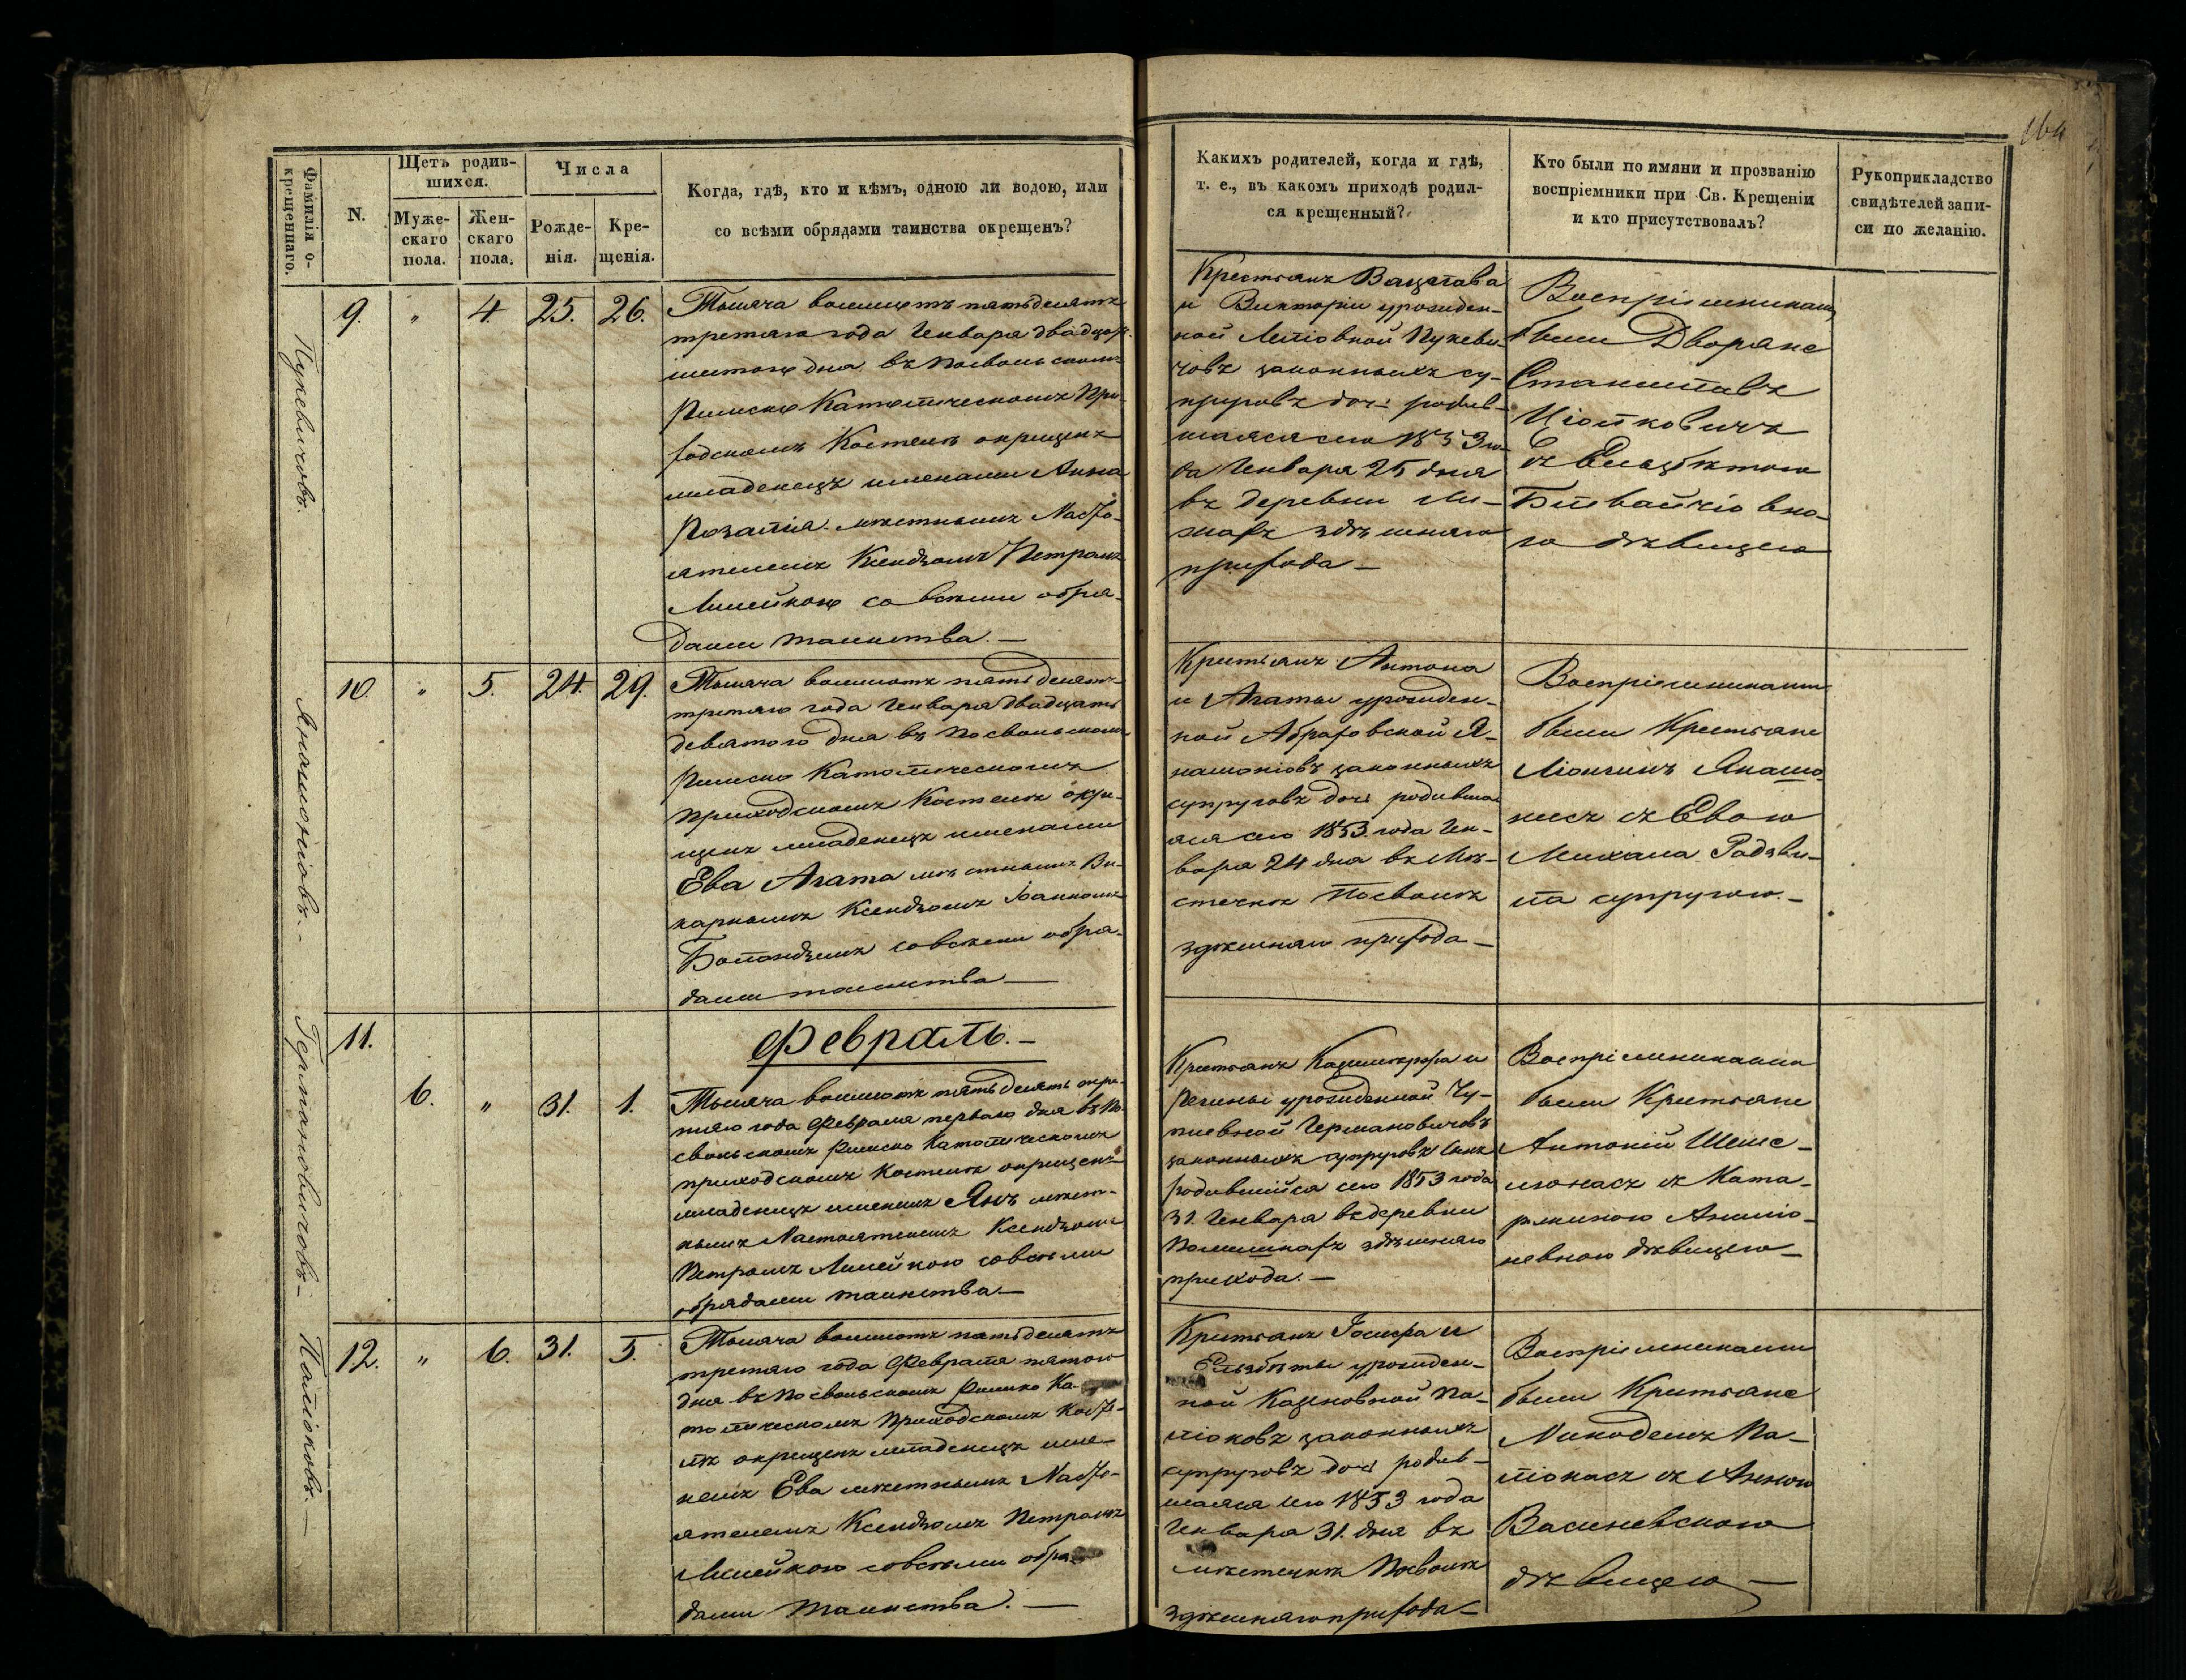 164
Фамилія о-
крещеннаго.
N.
Щетъ родив-
шихся.
Муже-
скаго
пола.
Жен-
скаго
пола.
Числа
Рожде-
нія.
Кре-
щенія.
Когда, гдѣ, кто и кѣмъ, одною ли водою, или
со всѣми обрядами таинства окрещенъ?
Какихъ родителей, когда и гдѣ,
т. е., въ какомъ приходѣ родил-
ся крещенный?
Кто были по имяни и прозванію
воспріемники при Св. Крещеніи
и кто присутствовалъ?
Рукоприкладство
свидѣтелей запи-
си по желанію.
Пукевичовъ.
9.
"
4.
25.
26.
Тысяча восемцетъ пятьдесятъ
третяго года Генваря двадцать
шестого дня въ Посвольскомъ
Римско Католическомъ При-
ходскомъ Костелѣ окрещенъ
младенецъ именами Анна
Розалія мѣстнымъ Насто-
ятелемъ Ксендзомъ Петромъ
Лимейкою со всѣми обря-
дами таинства.—
Крестьянъ Вацлава
и Викторіи урожден-
ной Пукеви-
човъ законныхъ су-
пруговъ дочь родив-
шаяся сего 1853 го-
да Генваря 25 дня
въ деревни
здѣшняго
прихода —
Воспріемниками
были Дворяне
Станиславъ
съ Елизбѣтою
дѣвицею
Янамонісовъ.-
10.
"
5.
24.
29.
Тысяча восемсотъ пятьдесятъ
третяго года Генваря двадцать
девятого дня въ Посвольскомъ
Римско Католическомъ
приходскомъ Костелѣ окре-
щенъ младенецъ именами
Ева Агата мѣстнымъ Ви-
карнымъ Ксендзомъ Іоанномъ
со всѣми обря-
дами таинства —
Крестьянъ Антона
и Агаты урожден-
ной Абраговской Я-
законныхъ
супруговъ дочь родивша-
яся сего 1853. года Ген-
варя 24 дня въ Мѣ-
стечкѣ Посволѣ
здѣшняго прихода —
Воспріемниками
были Крестьяне
съ Евою
Михала
супругою.—
Германовичовъ-
11.
6.
"
31.
1.
Февраль.-
Тысяча восемсотъ пятьдесятъ тре-
тяго года Февраля перваго дня въ По-
свольскомъ Римско Католическомъ
приходскомъ Костелѣ окрещенъ
младенецъ именемъ Янъ мѣст-
нымъ Настоятелемъ Ксендзомъ
Петромъ Лимейкою со всѣми
обрядами таинства.—
Крестьянъ Казимѣра и
Регины урожденной Чу-
Германовичовъ
законныхъ супруговъ сынъ
родившійся сего 1853 года
31. Генваря въ деревни
здѣшняго
прихода.—
Воспріемниками
были Крестьяне
Антоній Шеше-
съ Ката-
риною
дѣвицею —
Паліоковъ.—
12.
"
6.
31.
5.
Тысяча восемсотъ пятьдесятъ
третяго года Февраля пятого
дня въ Посвольскомъ Римско Ка-
толическомъ Приходскомъ Косте-
лѣ окрещенъ младенецъ име-
немъ Ева мѣстнымъ Насто-
ятелемъ Ксендзомъ Петромъ
Лимейкою со всѣми обря-
дами таинства.—
Крестьянъ Іосифа и
Эльзбѣты урожден-
ной Па-
ліоковъ законныхъ
супруговъ дочь родив-
шаяся сего 1853 года
Генваря 31. дня въ
мѣстечкѣ Посволѣ
здѣшняго прихода —
Воспріемниками
были Крестьяне
Никодемъ Па-
ліокасъ съ Анною
Василевскою
дѣвицею —